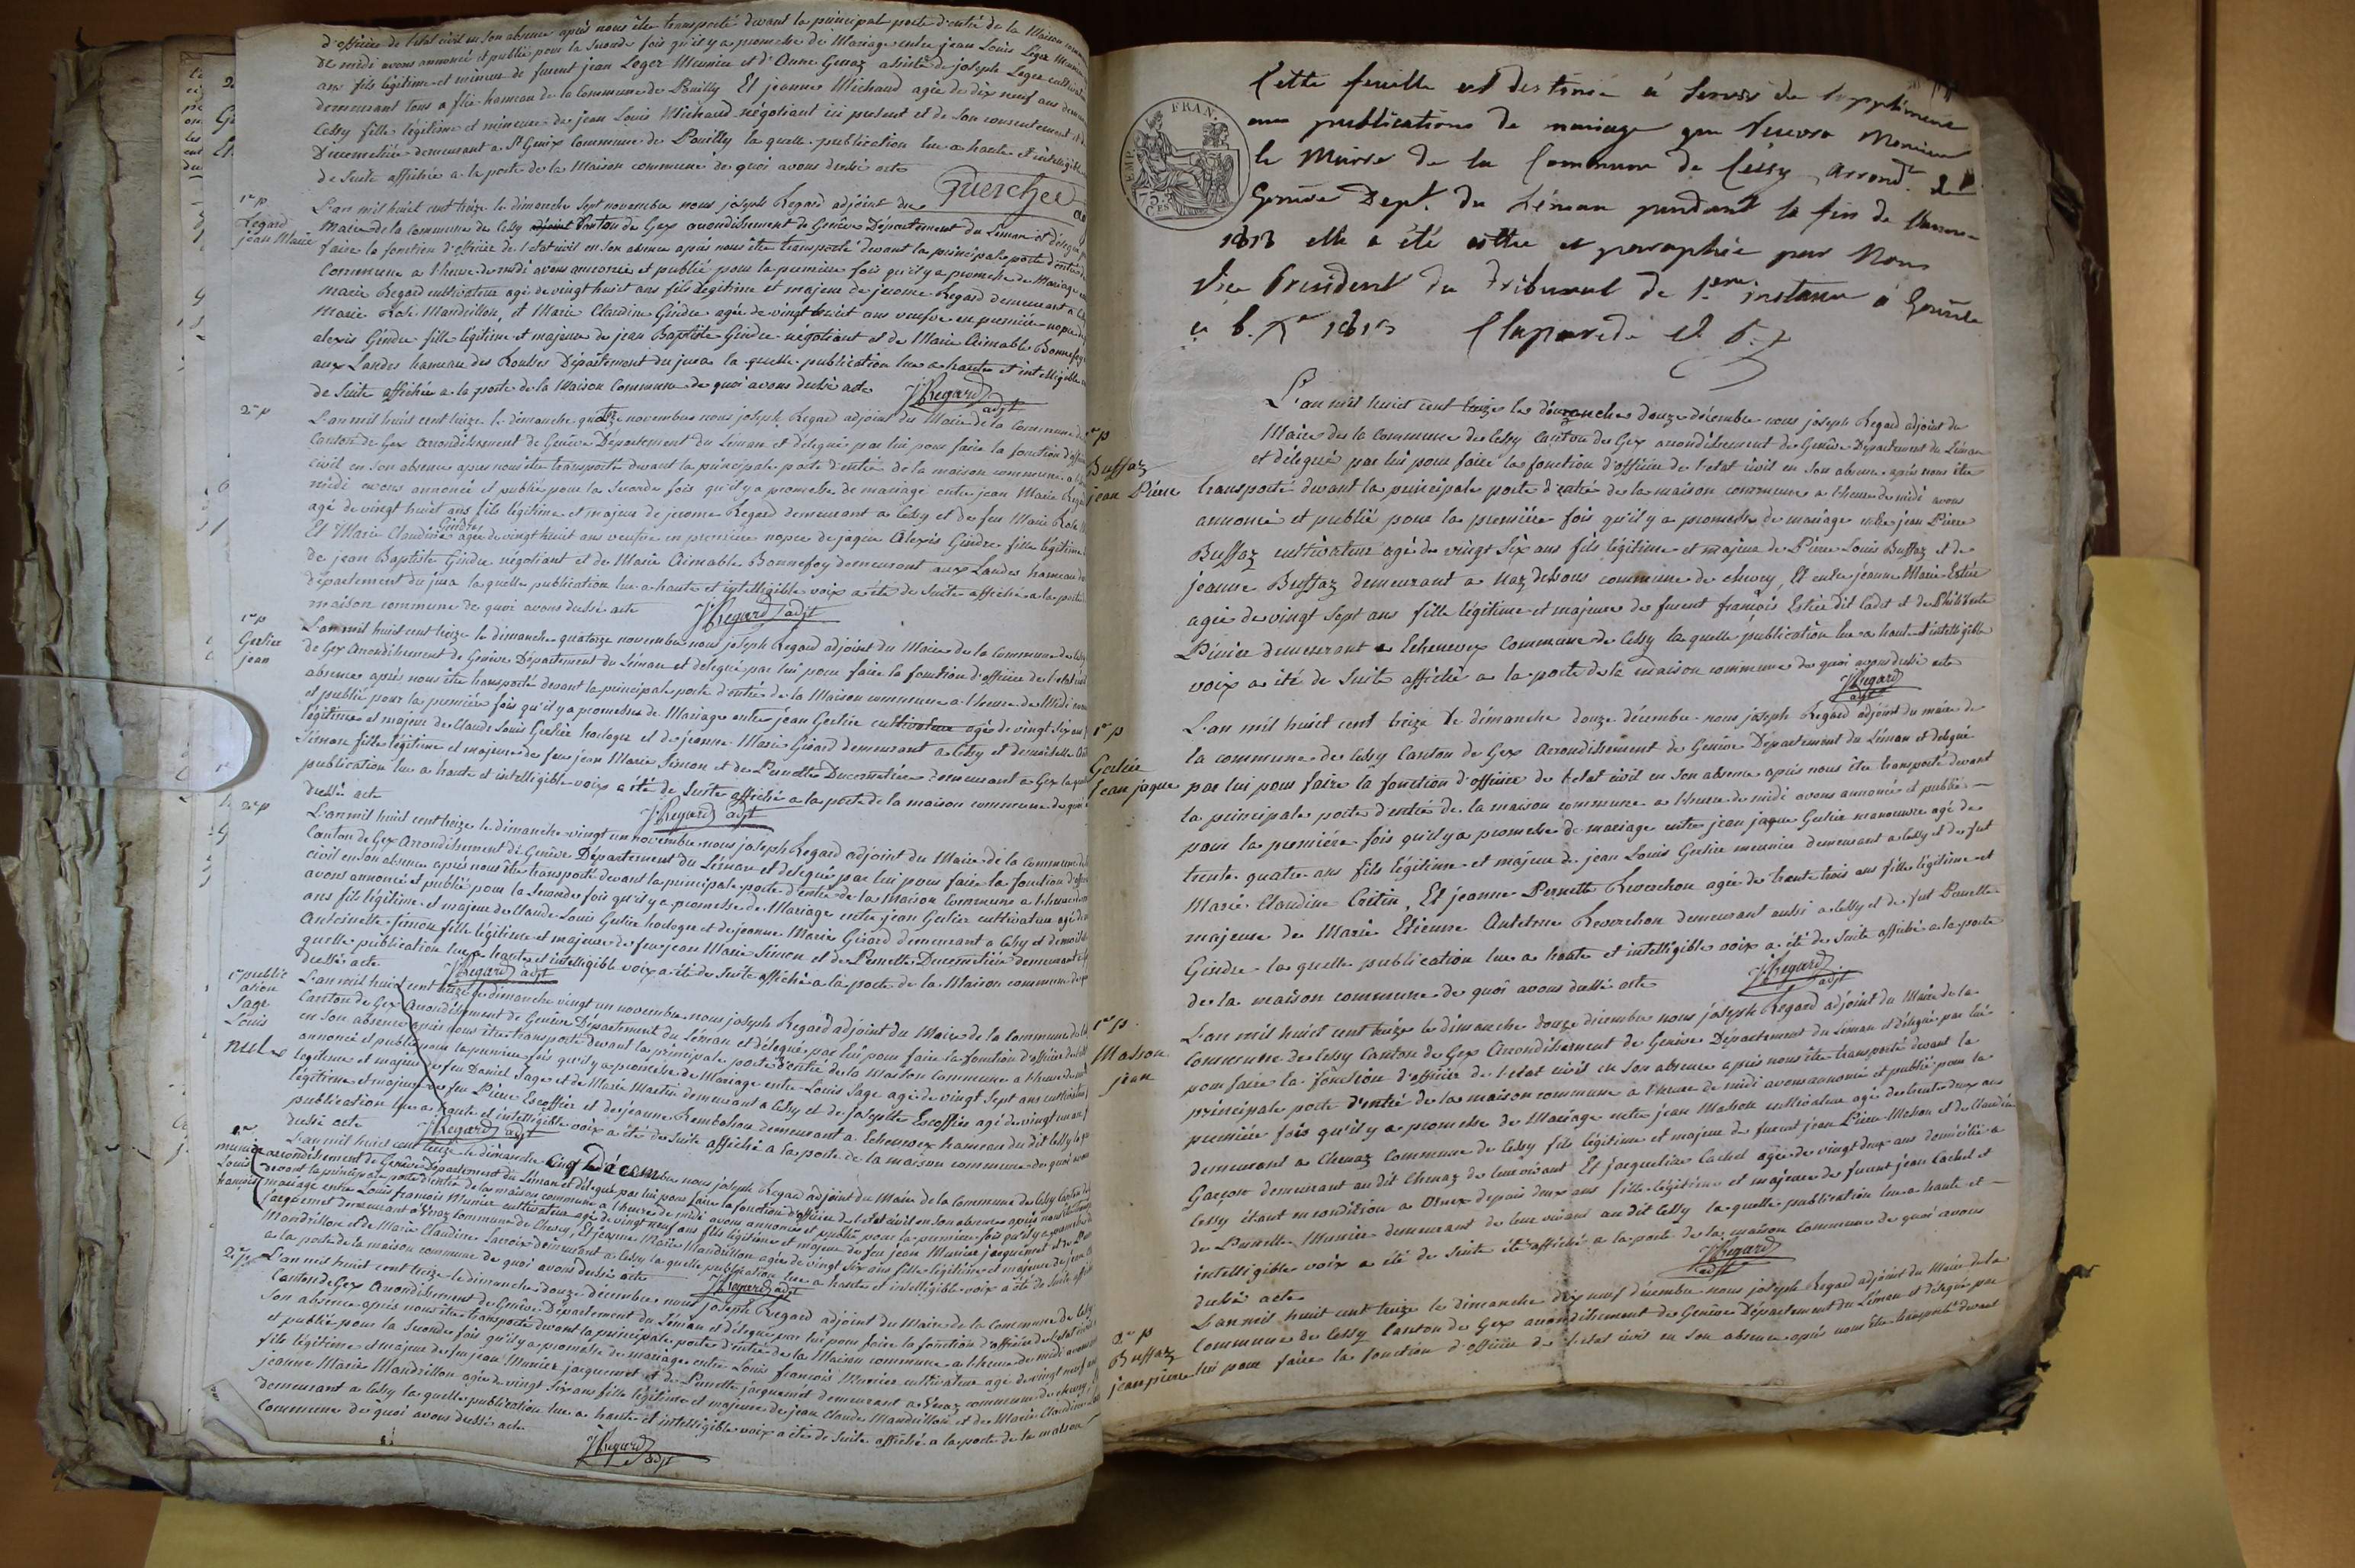 d'officier de l'etat civil en son absence après nous être transporté devant la principale porte d'entré de la Maison
de midi avons annoncé et publié pour la seconde fois qu'il y a promesse de Mariage entre jean Louis Léger Meunier
ans fils légitime et mineur de furent jean Leger Meunier et d'Anne Genoz assisté de joseph Leger
demeurant tous a flié hameau de la Commune de Pouilly Et jeanne Michaud agée de dix neuf ans
Cessy fille légitime et mineure de jean Louis Michaud négotiant ici présent et de son consentement
Ducrettée demeurant a St Genix Commune de Pouilly la quelle publication lue a haute et intelligible
de suite affichée a la porte de la Maison commune de quoi avons dressé acte
1re p
Regard
jean Marie
L'an mil huit cent treize le dimanche sept novembre nous joseph Regard adjoint du
Maire de la Commune de Cessy Canton de Gex arrondissement de Genève Département du Léman et délégué
faire la fonction d'officier de l'etat civil en son absence après nous être transporté devant la principale porte d'entré
Commune a l'heure de midi avons annoncé et publié pour la première fois qu'il y a promesse de Mariage
Marie Regard cultivateur agé de vingt huit ans fils légitime et majeur de jerome Regard demeurant a
Marie Rose Mandrillon, et Marie Claudine Gindre agée de vingt huit ans veufve en première nopce
alexis Gindre fille légitime et majeure de jean Baptiste Gindre négotiant et de Marie Aimable Bonnefoy
aux Landes hameau des Rousses Département du jura la quelle publication lue a haute et intelligible
de suite affichée a la porte de la Maison Commune de quoi avons dressé acte
JRegard adjt
2e p
L'an mil huit cent treize le dimanche quatorze novembre nous joseph Regard adjoint du Maire de la Commune de
Canton de Gex arrondissement de Genève Département du Léman et délégué par lui pour faire la fonction
civil en son absence après nous être transporté devant la principale porte d'entré de la maison commune
midi avons annoncé et publié pour la seconde fois qu'il y a promesse de mariage entre jean Marie
agé de vingt huit ans fils légitime et majeur de jerome Regard demeurant a Cessy et de feu Marie Rose
Et Marie Claudine Gindre agée de vingt huit ans veufve en première nopce de jaque Alexis Gindre fille légitime
de jean Baptiste Gindre négotiant et de Marie Aimable Bonnefoy demeurant aux Landes hameau
département du jura la quelle publication lue a haute et intelligible voix a été de suite affiché a la porte
maison commune de quoi avons dressé acte
JRegard adjt
1re p
Gerlier
jean
L'an mil huit cent treize le dimanche quatorze novembre nous joseph Regard adjoint du Maire de la Commune de Cessy
de Gex Arrondissement de Genève Département du Léman et délégué par lui pour faire la fonction d'officier de l'etat civil
absence après nous être transporté devant la principale porte d'entré de la Maison commune a l'heure de Midi
et publié pour la première fois qu'il y a promesse de Mariage entre jean Gerlier cultivateur agé de vingt six ans
légitime et majeur de Claude Louis Gerlier horloger et de jeanne Marie Girard demeurant a Cessy et demoiselle
Simon fille légitime et majeure de feu jean Marie Simon et de Pernette Ducrettée demeurant a Gex
publication lue a haute et intelligible voix a été de suite affiché a la porte de la maison commune de quoi
dressé acte
JRegard adjt
2e p
L'an mil huit cent treize le dimanche vingt un novembre nous joseph Regard adjoint du Maire de la Commune
Canton de Gex Arrondissement de Genève Département du Léman et délégué par lui pour faire la fonction
civil en son absence après nous être transporté devant la principale porte d'entré de la Maison Commune a l'heure
avons annoncé et publié pour la seconde fois qu'il y a promesse de Mariage entre jean Gerlier cultivateur
ans fils légitime et majeur de Claude Louis Gerlier horloger et de jeanne Marie Girard demeurant a Cessy et
Antoinette Simon fille légitime et majeure de feu jean Marie Simon et de Pernette Ducrettée demeurant
quelle publication lue a haute et intelligible voix a été de suite affiché a la porte de la Maison commune
dressé acte
JRegard adjt
1re public
ation
Sage
Louis
nul
L'an mil huit cent treize le dimanche vingt un novembre nous joseph Regard adjoint du Maire de la Commune
Canton de Gex Arrondissement de Genève Département du Léman et délégué par lui pour faire la fonction d'officier de
en son absence après nous être transporté devant la principale porte d'entré de la Maison Commune a l'heure
annoncé et publié pour la première fois qu'il y a promesse de Mariage entre Louis Sage agé de vingt sept ans
légitime et majeur de feu Daniel Sage et de Marie Martin demeurant a Cessy et de josephte Escoffier agé de vingt un
légitime et majeure de feu Pierre Escoffier et de jeanne demeurant a Echenevex hameau du dit Cessy
publication lue a haute et intelligible voix a été de suite affiché a la porte de la maison commune de quoi
dressé acte
JRegard adjt
1re
munier
Louis
françois
L'an mil huit cent treize le dimanche cinq Décembre nous joseph Regard adjoint du Maire de la Commune de Cessy Canton
arrondissement de Genève Département du Léman et délégué par lui pour faire la fonction d'officier de l'etat civil en son absence après nous
devant la principale porte d'entré de la maison commune a l'heure de midi avons annoncé et publié pour la première fois qu'il y a
mariage entre Louis françois Munier cultivateur agé de vingt neuf ans fils légitime et majeur de feu jean Munier jacquemet
jacquemet demeurant a Naz commune de Chevry, Et jeanne Marie Mandrillon agée de vingt six ans fille légitime et majeure de
Mandrillon et de Marie Claudine Lacroix demeurant a Cessy la quelle publication lue a haute et intelligible voix a été de suite
a la porte de la maison commune de quoi avons dressé acte
JRegard adjt
2e p
L'an mil huit cent treize le dimanche douze décembre nous joseph Regard adjoint du Maire de la Commune de Cessy
Canton de Gex Arrondissement de Genève Département du Léman et délégué par lui pour faire la fonction d'officier de l'etat
son absence après nous être transporté devant la principale porte d'entré de la Maison commune a l'heure de midi
et publié pour la seconde fois qu'il y a promesse de mariage entre Louis françois Munier cultivateur agé de vingt neuf
fils légitime et majeur de feu jean Munier jacquemet et de Pernette jacquemet demeurant a Naz commune de Chevry
jeanne Marie Mandrillon agée de vingt six ans fille légitime et majeure de jean Claude Mandrillon et de Marie Claudine
demeurant a Cessy la quelle publication lue a haute et intelligible voix a été de suite affiché a la porte de la maison
Commune de quoi avons dressé acte
JRegard adjt
FRAN.
EMP.
Cette feuille est destinée à servir de supplément
aux publications de mariage que recevra Monsieur
le Maire de la Commune de Cessy Arrondt de
Genève Dept du Léman pendant la fin de l'année
1813 elle a été cottée et paraphée par Nous
Vice Président du Tribunal de 1ere instance à Genève
1813 Claparede
1re p
Buffaz
jean Pierre
L'an mil huit cent treize le dimanche douze décembre nous joseph Regard adjoint du
Maire de la Commune de Cessy Canton de Gex arrondissement de Genève Département du Léman
et délégué par lui pour faire la fonction d'officier de l'etat civil en son absence après nous être
transporté devant la principale porte d'entré de la maison commune a l'heure de midi avons
annoncé et publié pour la première fois qu'il y a promesse de mariage entre jean Pierre
Buffaz cultivateur agé de vingt six ans fils légitime et majeur de Pierre Louis Buffaz et de
jeanne Buffaz demeurant a Naz dessous commune de chevry, Et entre jeanne Marie Estier
agée de vingt sept ans fille légitime et majeure de furent françois Estier dit Cadet et de
demeurant a Echenevex Commune de Cessy la quelle publication lue a haute et intelligible
voix a été de suite affiché a la porte de la maison commune de quoi avons dressé acte
JRegard
adjt
1re p
Gerlier
jean jaque
L'an mil huit cent treize le dimanche douze décembre nous joseph Regard adjoint du maire de
la commune de Cessy Canton de Gex Arrondissement de Genève Département du Léman et délégué
par lui pour faire la fonction d'officier de l'etat civil en son absence après nous être transporté devant
la principale porte d'entré de la maison commune a l'heure de midi avons annoncé et publié
pour la première fois qu'il y a promesse de mariage entre jean jaque Gerlier manoeuvre agé de
trente quatre ans fils légitime et majeur de jean Louis Gerlier meunier demeurant a Cessy et de fut
Marie Claudine Cretin, Et jeanne Pernette Reverchon agée de trente trois ans fille légitime et
majeure de Marie Etienne Antelme Reverchon demeurant aussi a Cessy et de fut Pernette
Gindre la quelle publication lue a haute et intelligible voix a été de suite affiché a la porte
de la maison commune de quoi avons dressé acte
JRegard
adjt
1re p.
Masson
jean
L'an mil huit cent treize le dimanche douze décembre nous joseph Regard adjoint du Maire de la
Commune de Cessy Canton de Gex Arrondissement de Genève Département du Léman et délégué par lui
pour faire la fonction d'officier de l'etat civil en son absence après nous être transporté devant la
principale porte d'entré de la maison commune a l'heure de midi avons annoncé et publié pour la
première fois qu'il y a promesse de Mariage entre jean Masson cultivateur agé de trente deux ans
demeurant a Chenaz Commune de Cessy fils légitime et majeur de furent jean Pierre Masson et de Claudine
Garçon demeurant au dit Chenaz de leur vivant Et jacqueline Cachet agée de vingt deux ans domicilié a
Cessy étant en condition a Ornex depuis deux ans fille légitime et majeure de furent jean Cachet et
de Pernette Munier demeurant de leur vivant au dit Cessy la quelle publication lue a haute et
intelligible voix a été de suite été affiché a la porte de la maison commune de quoi avons
dressé acte
JRegard
adjt
2e p
Buffaz
jean pierre
L'an mil huit cent treize le dimanche dix neuf décembre nous joseph Regard adjoint du Maire de la
Commune de Cessy Canton de Gex arrondissement de Genève Département du Léman et délégué par
lui pour faire la fonction d'officier de l'etat civil en son absence après nous être transporté devant